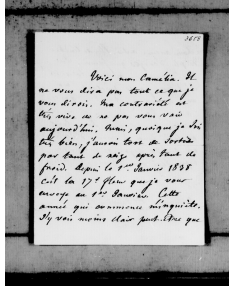 3658
Voici mon Camélia. Il
ne vous dira pas tout ce que je
vous dirois. Ma contrariété est
très vive de ne pas vous voir
aujourd'hui. Mais, quoique je sois
très bien, j'aurois tort de sortir
par tant de neige après tant de
froid. Depuis le 1er Janvier 1838
c'est la 17e fleur que je vous
envoye au 1er Janvier. Cette
année qui commence m'inquiète.
J'y vois moins clair peut-être que